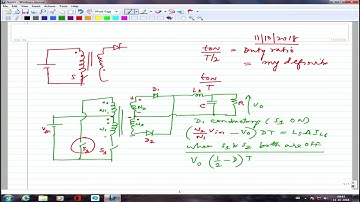 11/10/2018
ton
T/2
= Duty ratio
= my definitn
ton
T
S
D1
L0
C
R
V0
N1
N1
N2
N2
S2
S1
D2
D1 conducting (S1 ON)
(N2/N1 Vin - V0) DT = L0 ΔIL0
when S1 & S2 both are off
V0 (1/2 - D) T